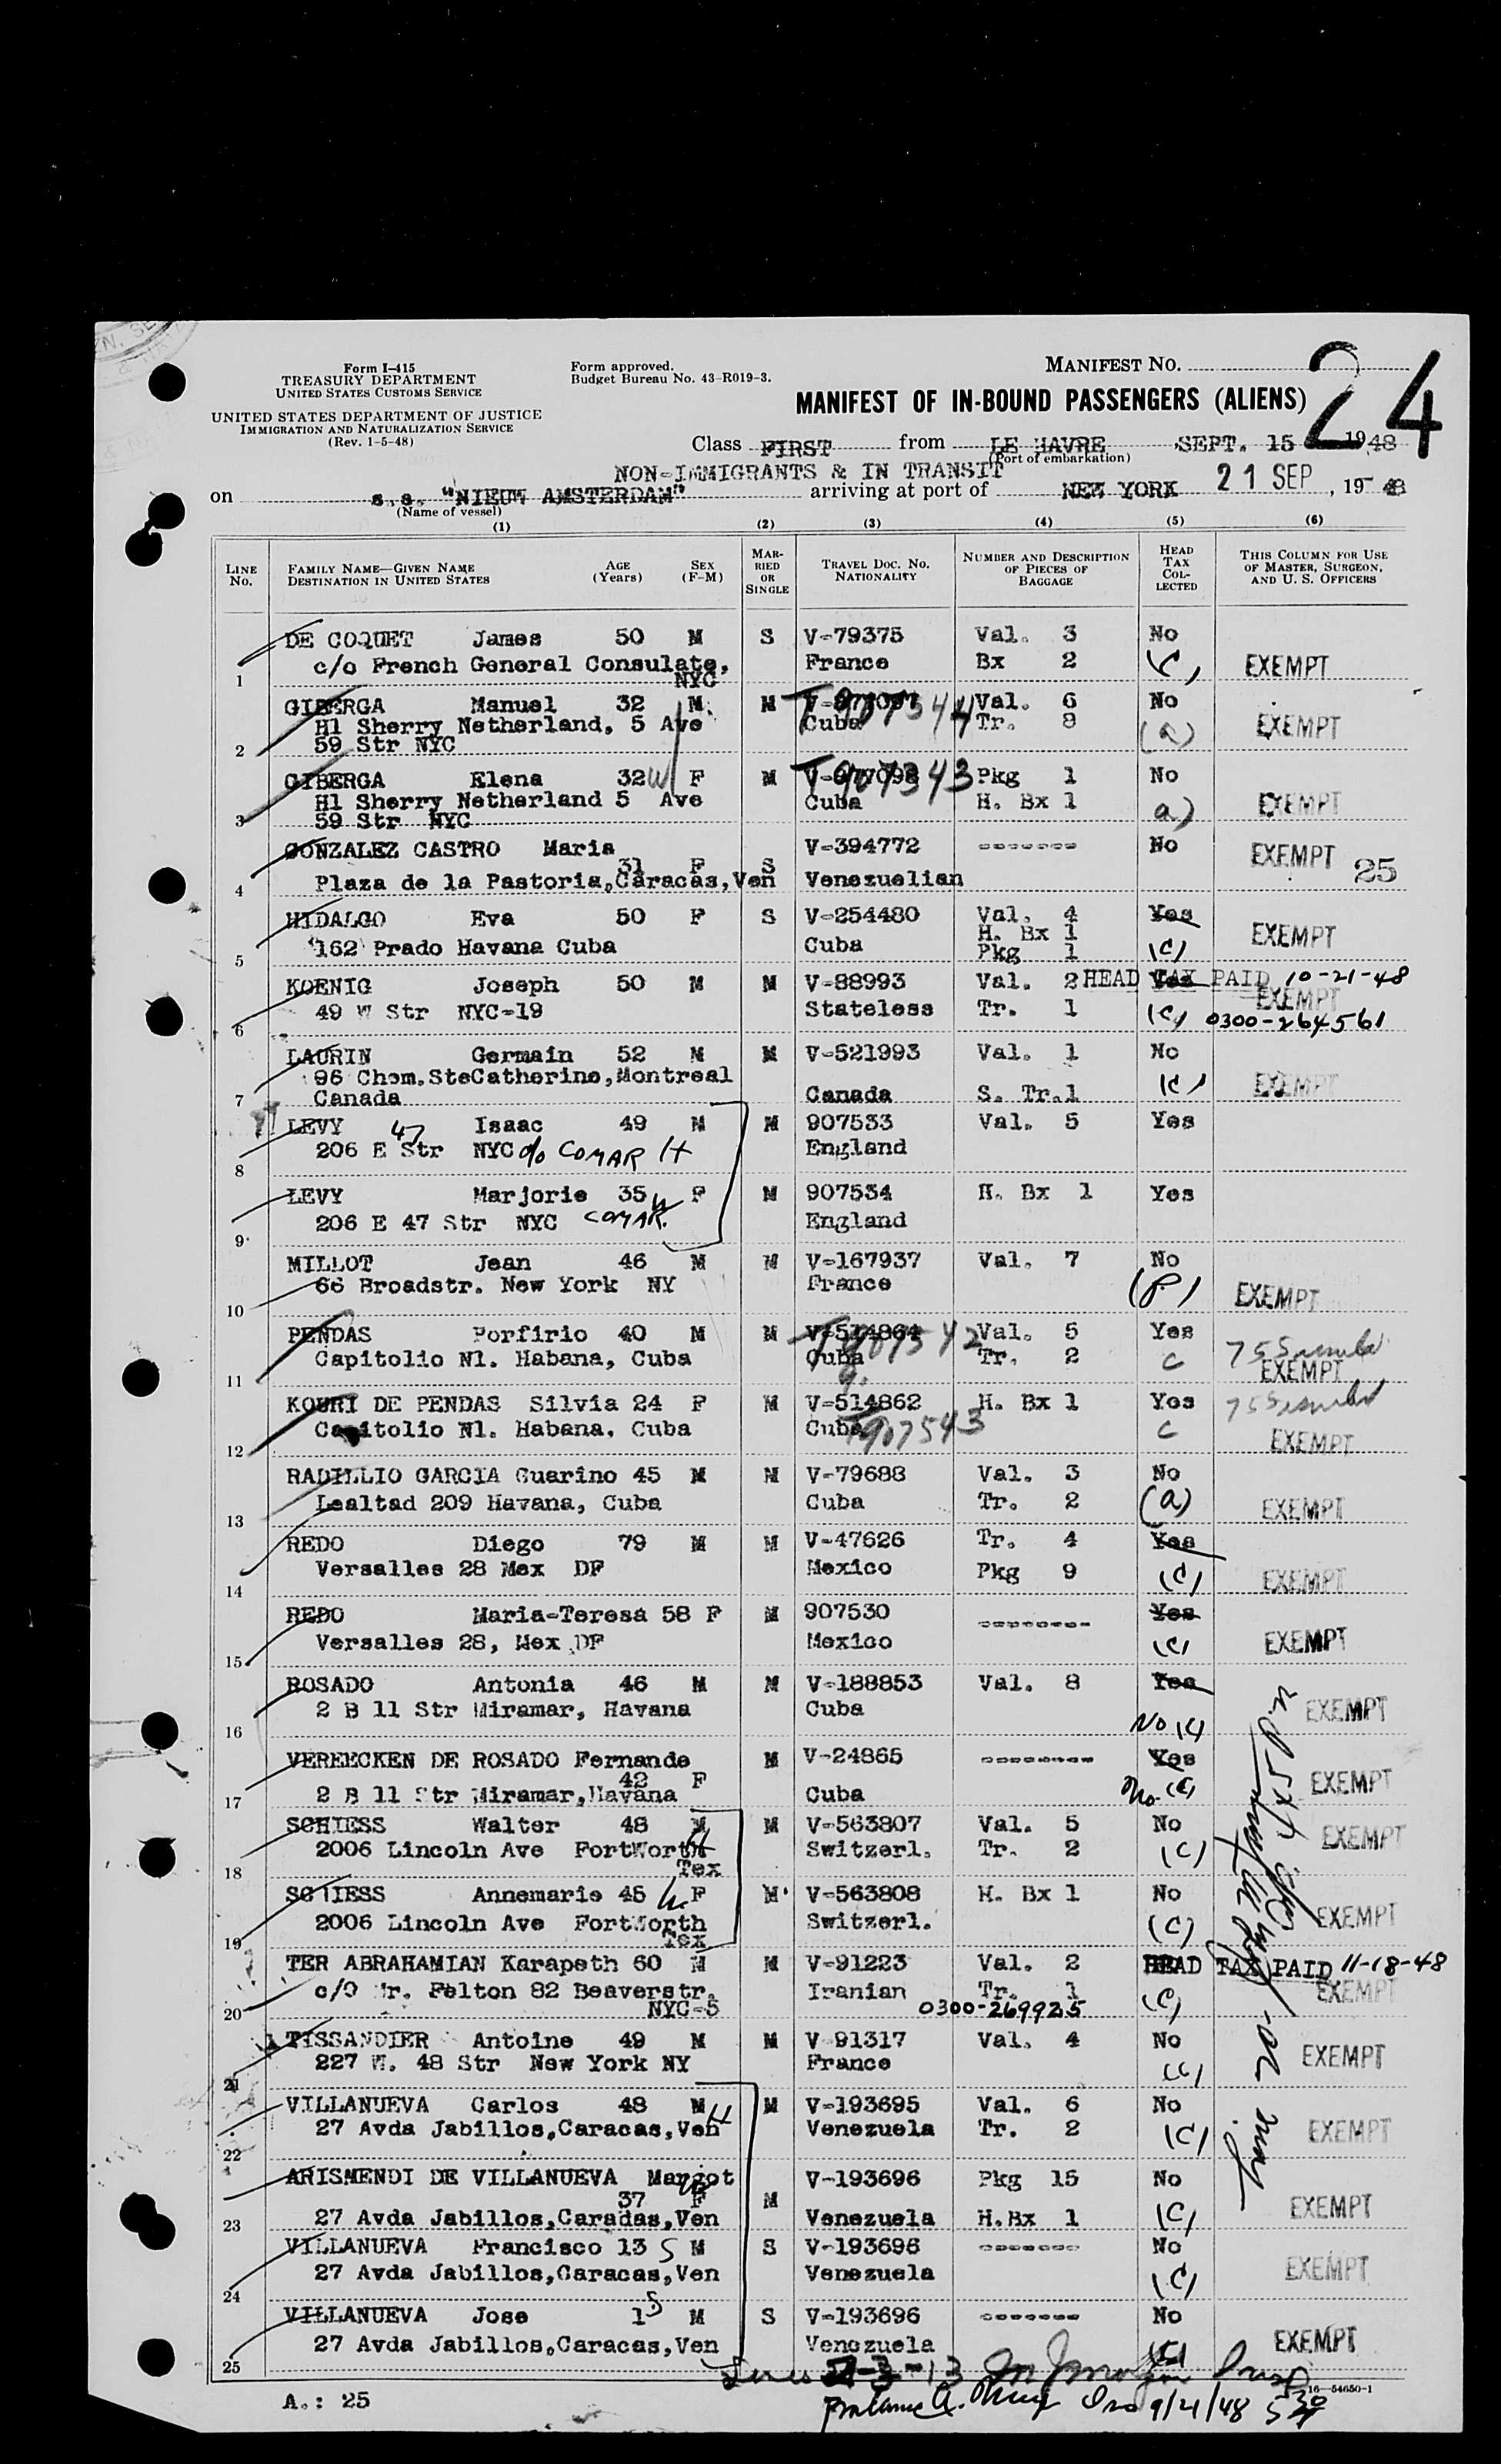 Form I-415
TREASURY DEPARTMENT
UNITED STATES CUSTOMS SERVICE
UNITED STATES DEPARTMENT OF JUSTICE
IMMIGRATION AND NATURALIZATION SERVICE
(Rev. 1-5-48)
Form approved.
Budget Bureau No. 43-R019-3.
MANIFEST NO. 24
MANIFEST OF IN-BOUND PASSENGERS (ALIENS)
Class FIRST from LE HAVRE SEPT. 15 1948
(Port of embarkation)
NON-IMMIGRANTS & IN TRANSIT
on s.s. "NIEUW AMSTERDAM" arriving at port of NEW YORK 21 SEP, 1948
(Name of vessel)
(1) (2) (3) (4) (5) (6)
LINE No. FAMILY NAME—GIVEN NAME DESTINATION IN UNITED STATES AGE (Years) SEX (F-M) MARRIED OR SINGLE TRAVEL DOC. NO. NATIONALITY NUMBER AND DESCRIPTION OF PIECES OF BAGGAGE HEAD TAX COLLECTED THIS COLUMN FOR USE OF MASTER, SURGEON, AND U. S. OFFICERS
DE COQUET James 50 M S V-79375 Val. 3 No
1 c/o French General Consulate, NYC France Bx 2 (c) EXEMPT
GIBERGA Manuel 32 M. M T 907344 Val. 6 No
Hl Sherry Netherland, 5 Ave Cuba Tr. 8 (a) EXEMPT
2 59 Str NYC
GIBERGA Elena 32 W F M V-677098 T 907343 Pkg 1 No
Hl Sherry Netherland 5 Ave Cuba H. Bx 1 a) EXEMPT
3 59 Str NYC
GONZALEZ CASTRO Maria V-394772 ------- No EXEMPT 25
31 F S
4 Plaza de la Pastoria, Caracas, Ven Venezuelian
HIDALGO Eva 50 F S V-254480 Val. 4 Yes
5 162 Prado Havana Cuba Cuba H. Bx 1 Pkg 1 (c) EXEMPT
KOENIG Joseph 50 M M V-88993 Val. 2 Yes HEAD TAX PAID 10-21-48
6 49 W Str NYC-19 Stateless Tr. 1 (c) EXEMPT 0300-264561
LAURIN Germain 52 M M V-521993 Val. 1 No
96 Chem.SteCatherine, Montreal (c) EXEMPT
7 Canada Canada S. Tr.1
LEVY Isaac 49 M M 907533 Val. 5 Yes
8 206 E 47 Str NYC c/o COMAR H England
LEVY Marjorie 35 W F M 907534 H. Bx 1 Yes
9 206 E 47 Str NYC COMAR England
MILLOT Jean 46 M M V-167937 Val. 7 No
10 66 Broadstr. New York NY France (P) EXEMPT
PENDAS Porfirio 40 M M V-514864 Val. 5 Yes
11 Capitolio Nl. Habana, Cuba Cuba Tr. 2 c EXEMPT
KOURI DE PENDAS Silvia 24 F M V-514862 H. Bx 1 Yes
12 Capitolio Nl. Habana, Cuba Cuba T907543 c EXEMPT
RADILLIO GARCIA Guarino 45 M M V-79688 Val. 3 No
13 Lealtad 209 Havana, Cuba Cuba Tr. 2 (a) EXEMPT
REDO Diego 79 M M V-47626 Tr. 4 Yes
14 Versalles 28 Mex DF Mexico Pkg 9 (c) EXEMPT
REDO Maria-Teresa 58 F M 907530 -------- Yes
15 Versalles 28, Mex DF Mexico (c) EXEMPT
ROSADO Antonia 46 M M V-188853 Val. 8 Yes EXEMPT
16 2 B 11 Str Miramar, Havana Cuba No (c)
VEREECKEN DE ROSADO Fernande M V-24865 -------- Yes
42 F
17 2 B 11 Str Miramar, Havana Cuba No (c) EXEMPT
SCHIESS Walter 48 M M V-563807 Val. 5 No EXEMPT
18 2006 Lincoln Ave FortWorth Tex H Switzerl. Tr. 2 (c)
SCHIESS Annemarie 45 W F M V-563808 H. Bx 1 No
19 2006 Lincoln Ave FortWorth Tex Switzerl. (c) EXEMPT
TER ABRAHAMIAN Karapeth 60 M M V-91223 Val. 2 HEAD TAX PAID 11-18-48
20 c/o Mr. Felton 82 Beaverstr. NYC-5 Iranian Tr. 1 0300-269925 (c) EXEMPT
TISSANDIER Antoine 49 M M V-91317 Val. 4 No
21 227 W. 48 Str New York NY France (c) EXEMPT
VILLANUEVA Carlos 48 M M V-193695 Val. 6 No
22 27 Avda Jabillos, Caracas, Ven H Venezuela Tr. 2 (c) EXEMPT
ARISMENDI DE VILLANUEVA Margot V-193696 Pkg 15 No
37 F M
23 27 Avda Jabillos, Caradas, Ven Venezuela H.Bx 1 (c) EXEMPT
VILLANUEVA Francisco 13 S M S V-193696 ------- No
24 27 Avda Jabillos, Caracas, Ven Venezuela (c) EXEMPT
VILLANUEVA Jose 1 S M S V-193696 ------- No
25 27 Avda Jabillos, Caracas, Ven Venezuela (c) EXEMPT
A.: 25
9/21/48
16-54650-1